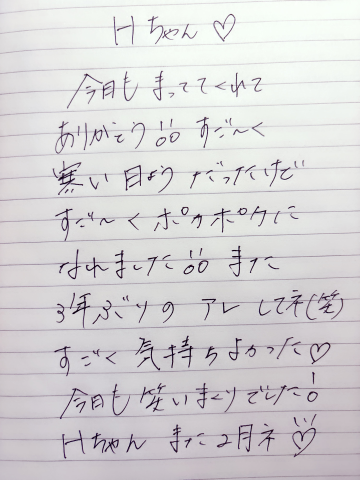 Hちゃん♡
今日も まっててくれて
ありがとう!! すご〜く
寒い 日ようだったけど
すご〜くポカポカに
なれました!! また
3年ぶりの アレ してネ(笑)
すごく 気持ちよかった♡
今日も 笑いまくりでした!
Hちゃん また2月ネ♡